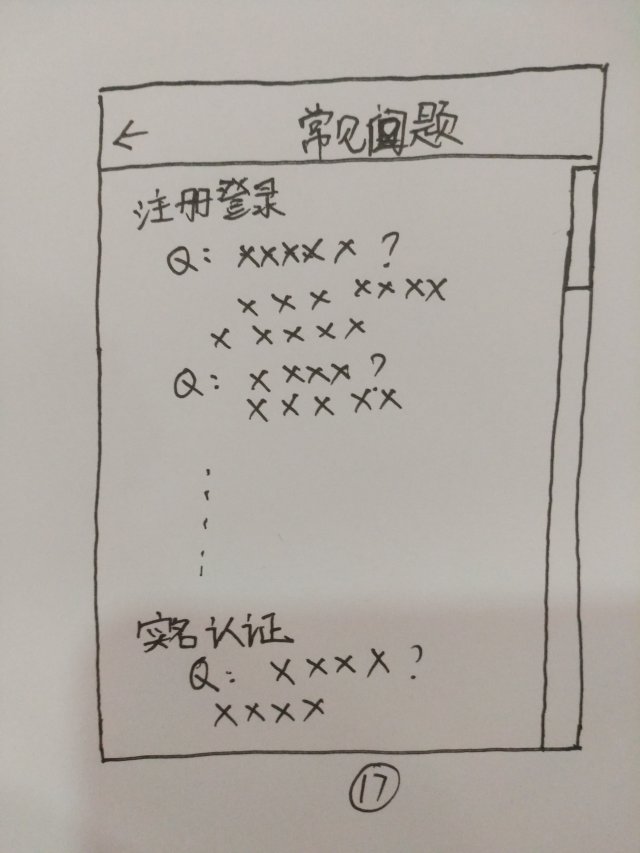 ← 常见问题
注册登录
Q: xxxx x ?
x x x xxxx
x x x x x
Q: x xxx ?
x x x xx
实名认证
Q: x x x x ?
x x x x
17